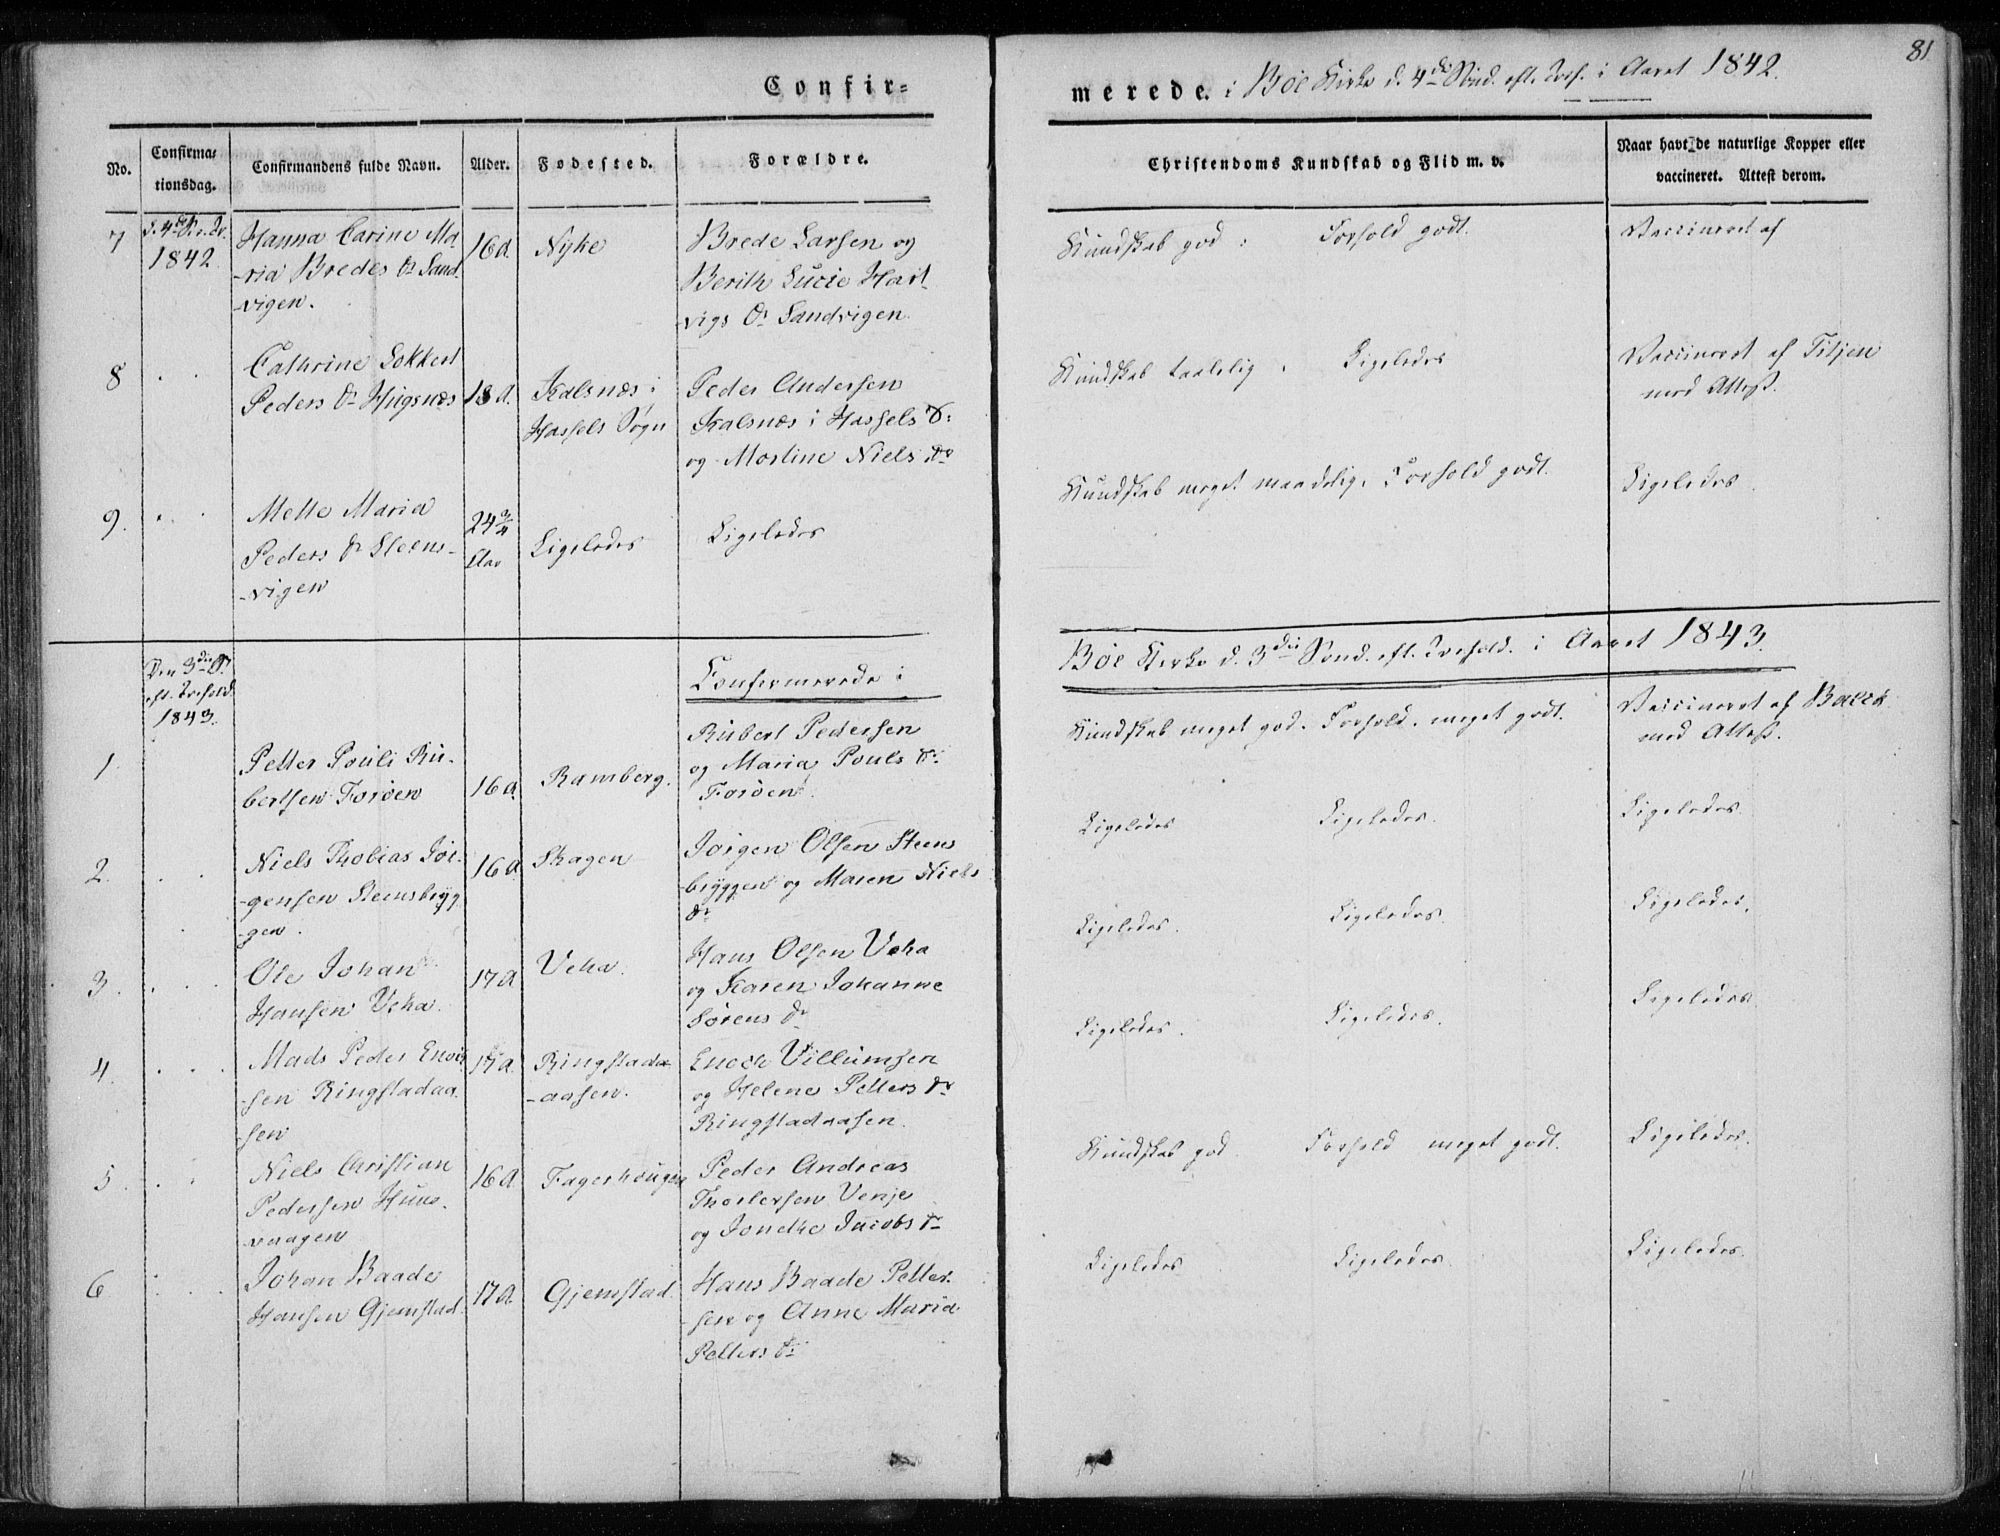 81
Confir=
merede. i Bøe Kirke d. 4de Sönd. eft. Tref. i Aaret 1842.
No.
Confirma-
tionsdag.
Confirmandens fulde Navn.
Alder.
Fødested.
Forældre.
Christendoms Kundskab og Flid m. v.
Naar havt de naturlige Kopper eller
vaccineret. Attest derom.
7
1842
Hanna Carine Ma-
-ria Bredes Dr Sand-
-vigen.
16 A.
Nyke
Brede Larsen og
Berith Lucie Hart-
-vigs Dr Sandvigen
Kundskab god :
Forhold godt.
Vaccineret af
8
Cathrine Lokkert
Peders Dr Hugsnæs
18 A.
Kalsnæs i
Hassels Sogn
Peder Andersen
Kalsnæs i Hassels S:
og Martine Niels Dr
Kundskab taalelig.
Ligeledes
Vaccineret af Tiljen
med Attest.
9.
Mette Maria
Peders Dr Steens-
-vigen
24 3/4
Aar
Ligeledes
Ligeledes
Kundskab meget maadelig. Forhold godt.
Ligeledes
Den 3die S.
eft. Trefold.
1843.
Confirmerede i
Bøe Kirke d. 3die Sönd. eft. Trefold. i Aaret 1843.
1.
Petter Pouli Ru-
bertsen Forøen
16 A.
Ramberg.
Rubert Pedersen
og Maria Pouls D:
Forøen.
Kundskab meget god. Forhold meget godt.
Vaccineret af Baeck
med Attest.
2.
Niels Thobias Jör-
-gensen Steensbryg-
-gen.
16 A
Skagen
Jörgen Olsen Steens
bryggen og Maren Niels
Dr
Ligeledes
Ligeledes.
Ligeledes.
3.
Ole Johan
Hansen Veha.
17 A
Veha.
Hans Olsen Veha
og Karen Johanne
Sörens Dr
Ligeledes.
Ligeledes.
Ligeledes.
4.
Mads Peder Enoc
-sen Ringstadaa-
-sen
17 A.
Ringstad-
-aasen.
Enoch Villumsen
og Helene Petters Dr
Ringstadaasen.
Ligeledes.
Ligeledes.
Ligeledes.
5.
Niels Christian
Pedersen Huus-
-vaagen
16 A.
Fagerhougen
Peder Andreas
Thorlevsen Venje
og Jondke Jacobs Dr
Kundskab god
Forhold meget godt.
Ligeledes.
6
Johan Baade
Hansen Gjemstad.
17 A.
Gjemstad.
Hans Baade Petter-
-sen og Anne Maria
Petters Dr
Ligeledes
Ligeledes.
Ligeledes.